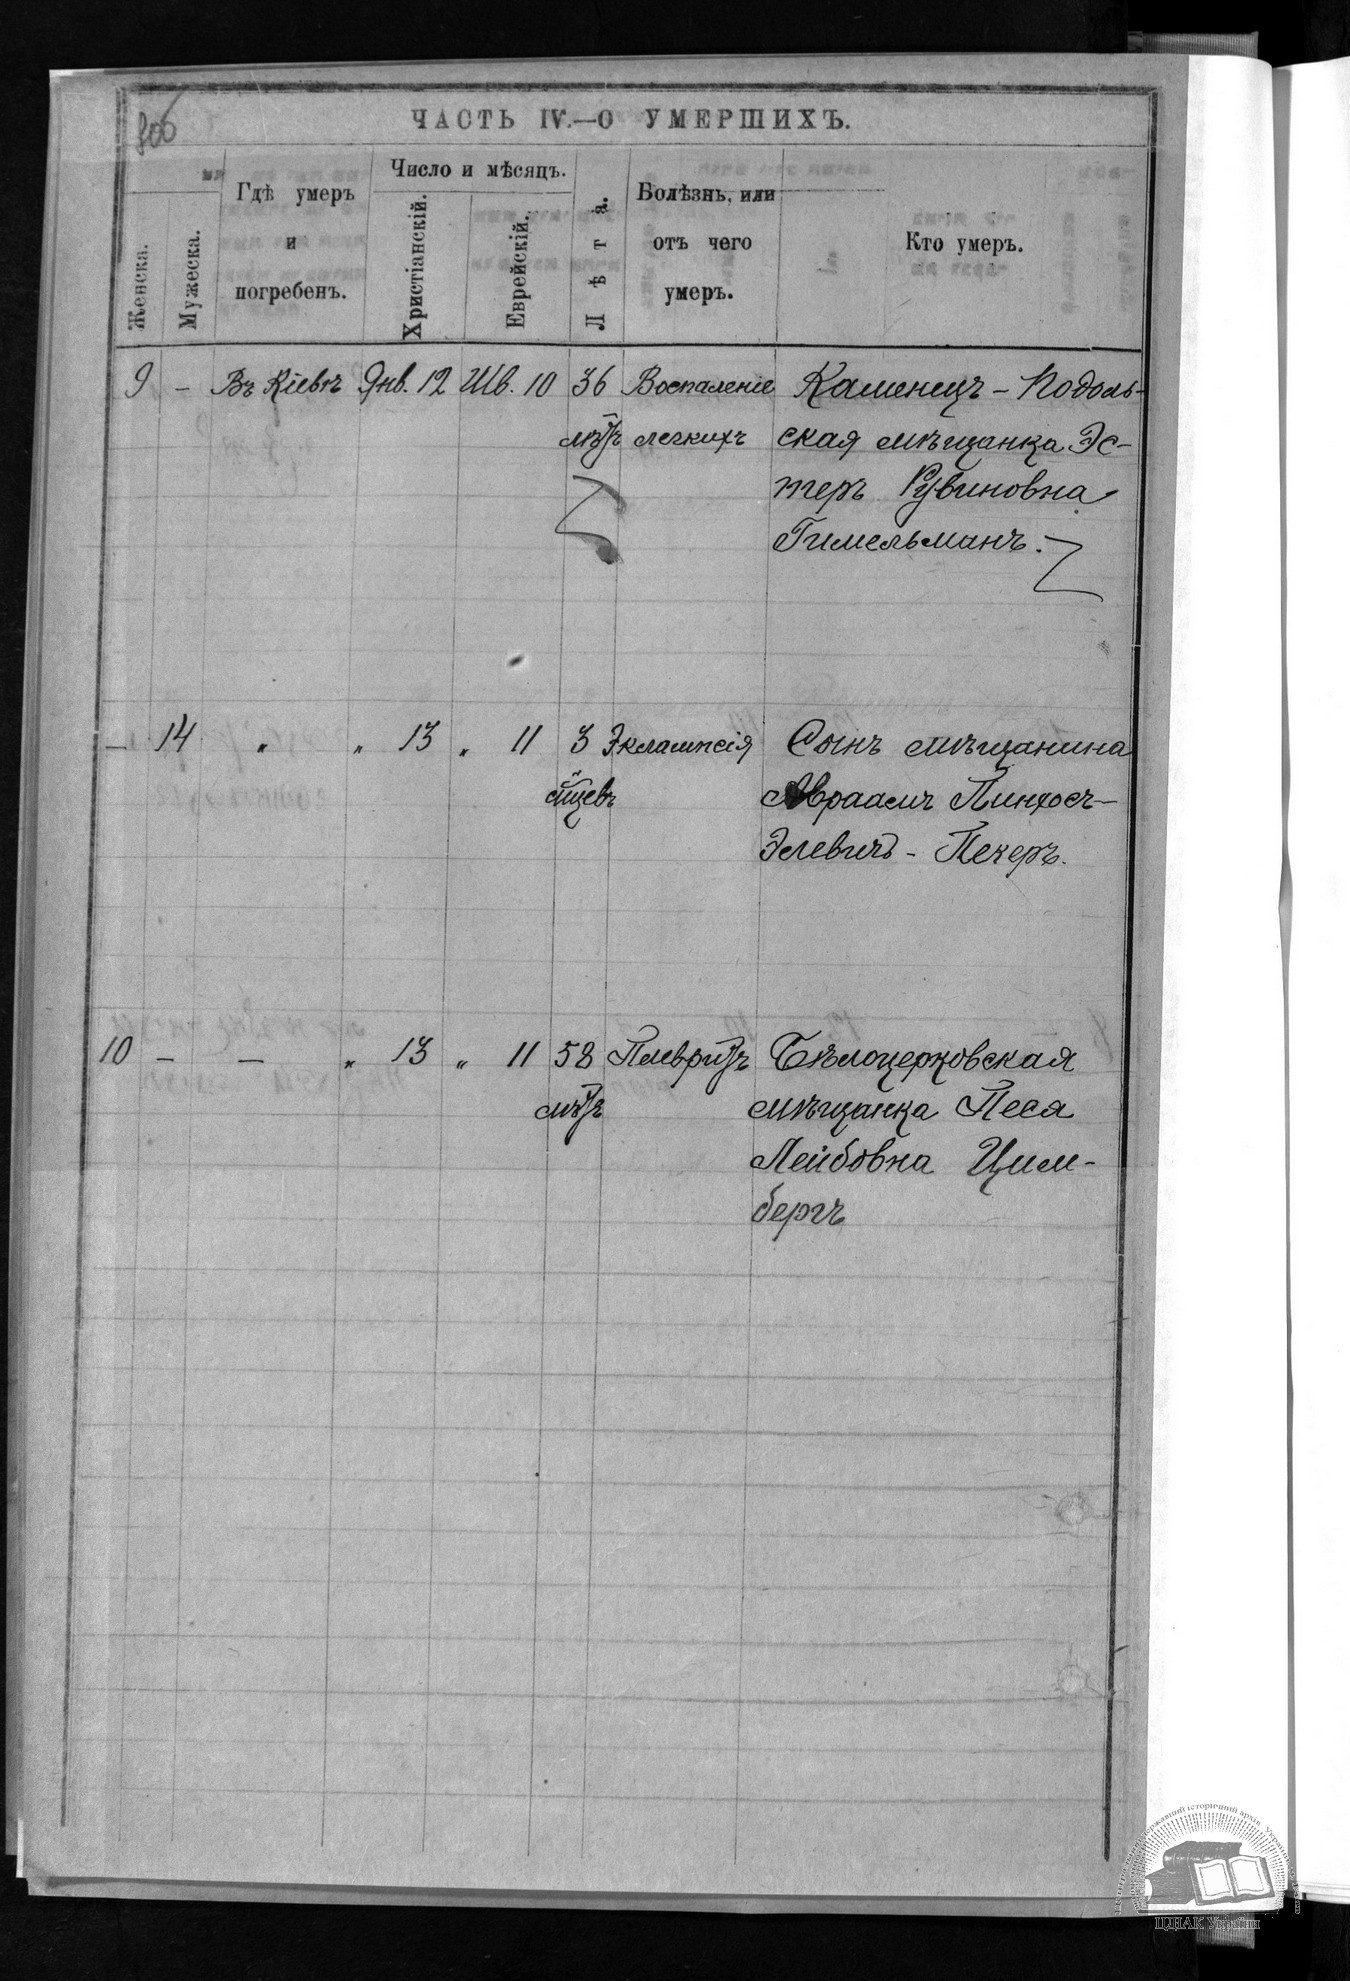 806
ЧАСТЬ IV.—О УМЕРШИХЪ.
Женска.
Мужеска.
Гдѣ умеръ
и
погребенъ.
Число и мѣсяцъ.
Христіанскій.
Еврейскій.
Лѣта.
Болѣзнь, или
отъ чего
умеръ.
Кто умеръ.
9 – Въ Кіевѣ Янв. 12 Шв. 10 36 Воспаленіе Каменецъ-Подоль-
лѣтъ легкихъ ская мѣщанка Эс-
теръ Рувиновна
Гимельманъ.
– 14 „ „ 13 „ 11 3 Эклампсія Сынъ мѣщанина
Авраамъ Пинхосъ-
Элевичъ - Пекеръ.
10 – – „ 13 „ 11 58 Плевритъ Бѣлоцерковская
лѣтъ мѣщанка Песя
Лейбовна Цим-
бергъ
ЦДІАК України